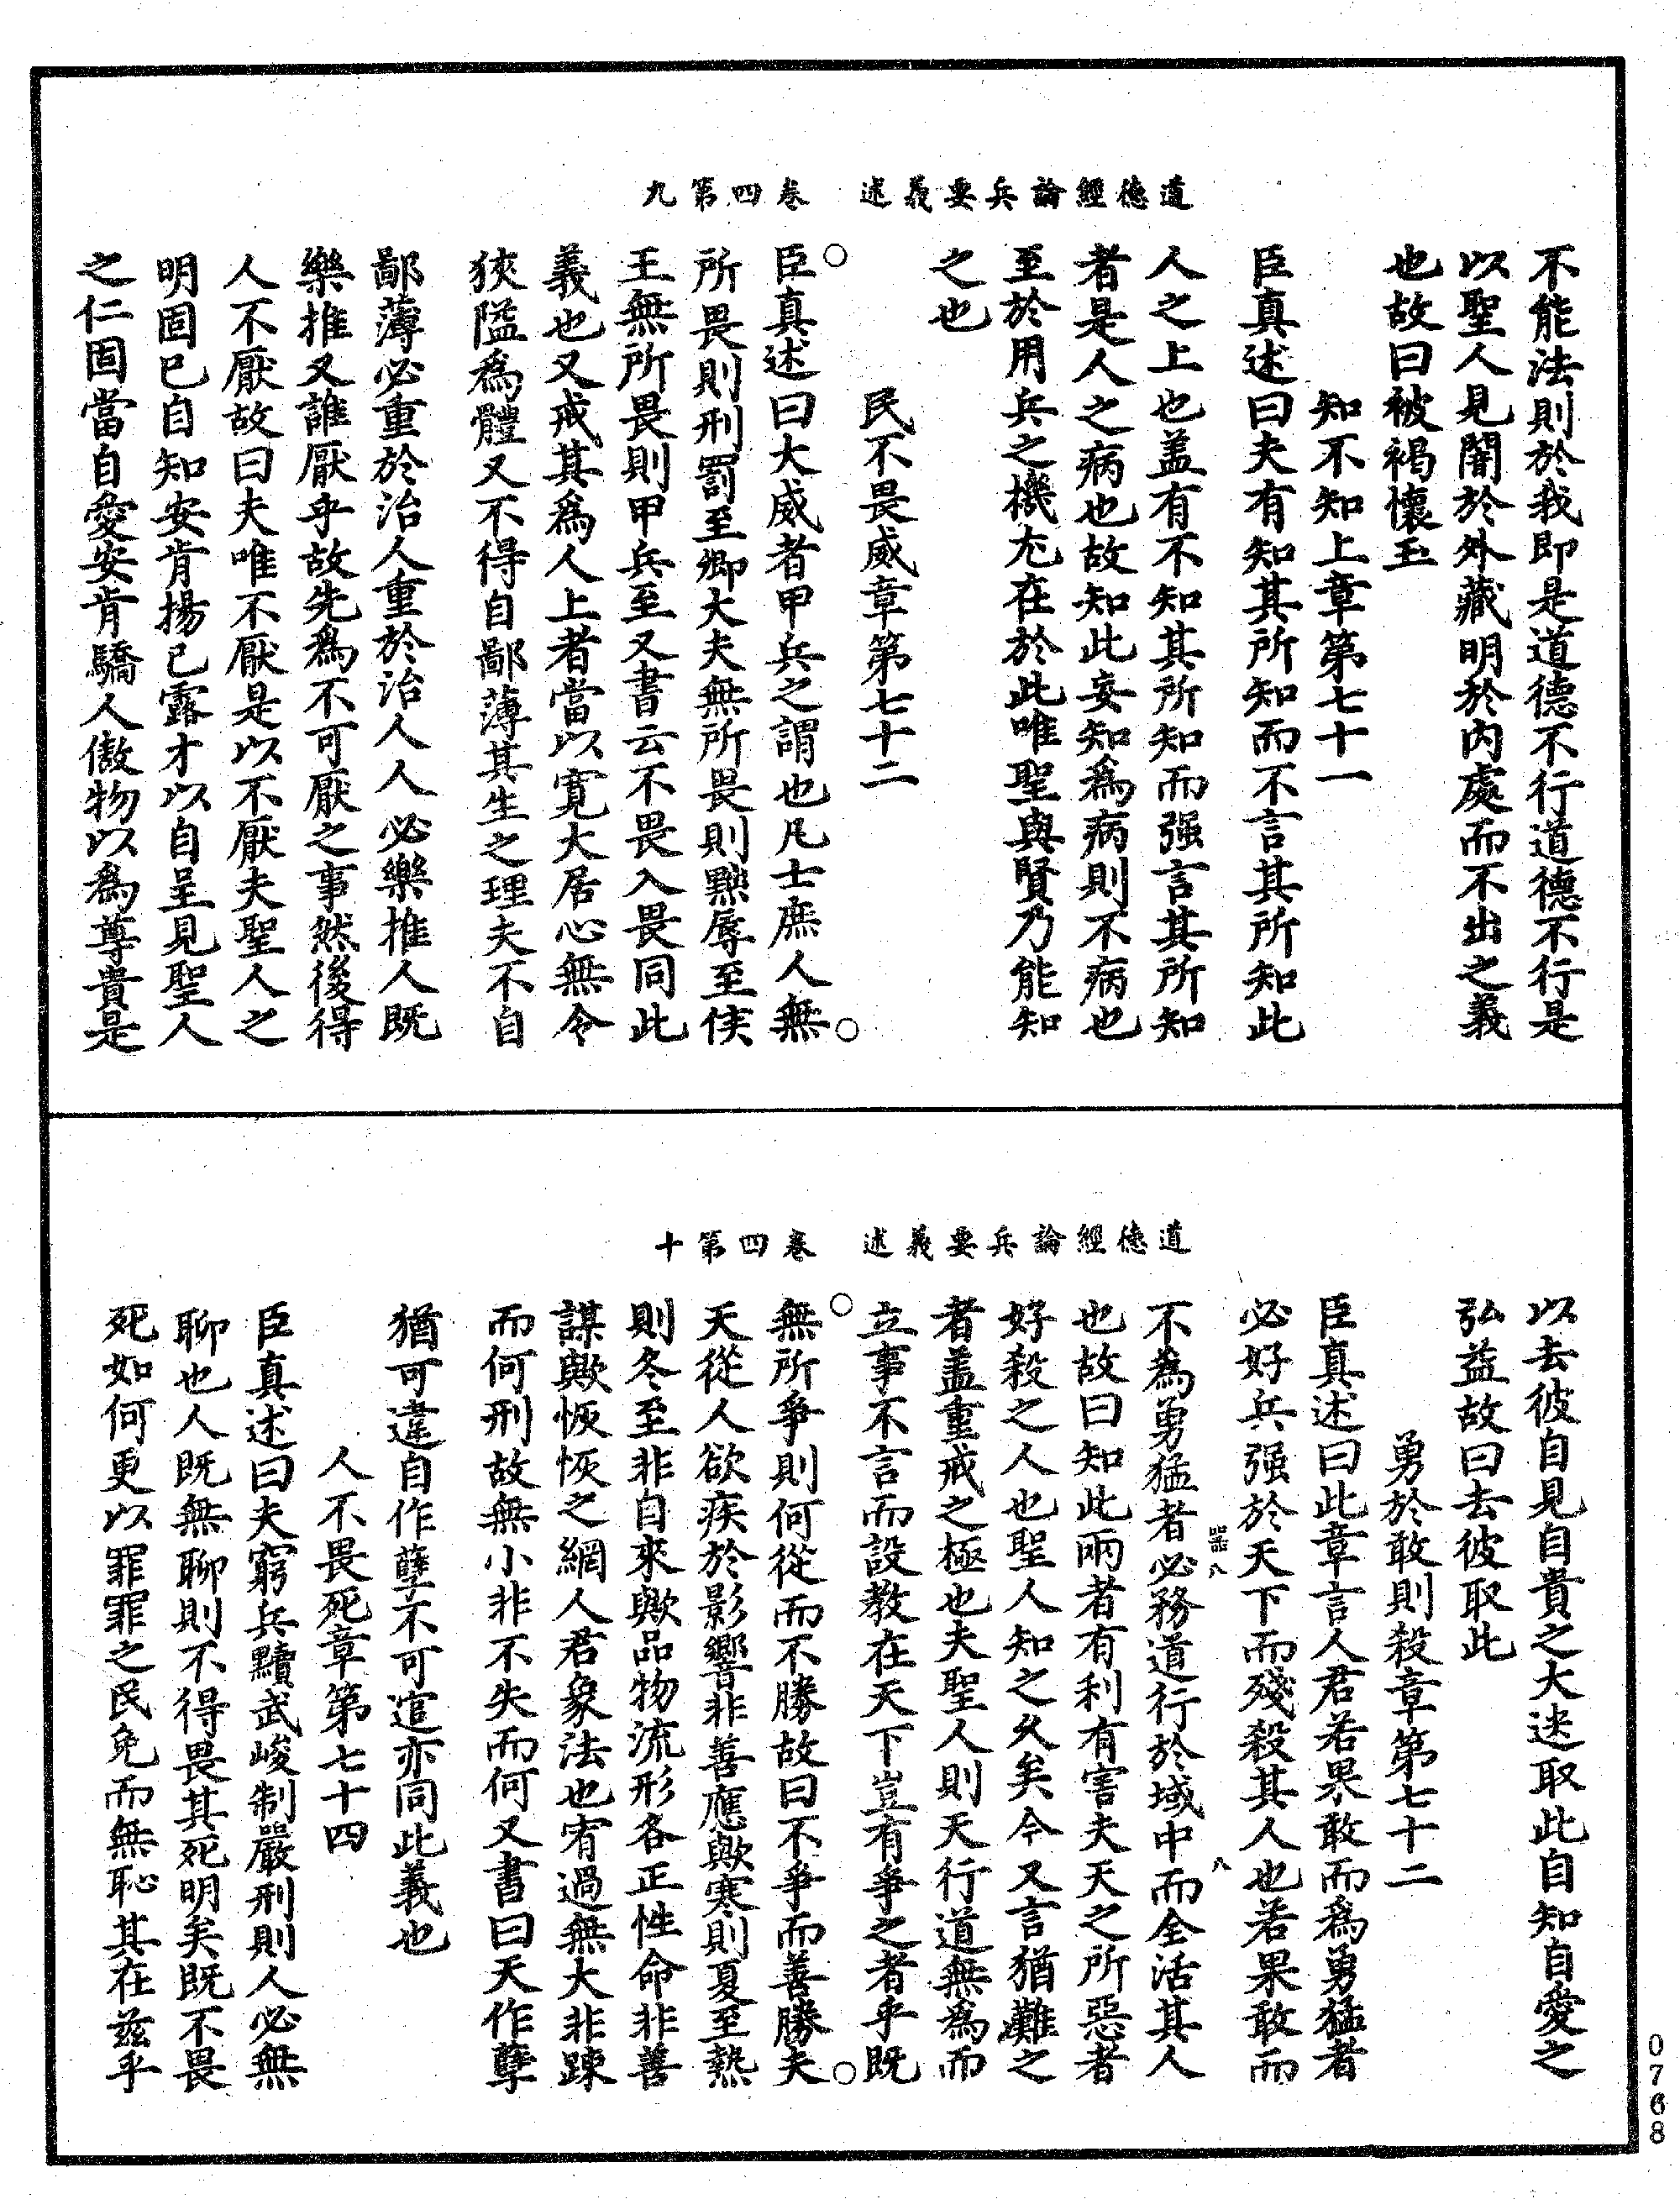 道德經論兵要義述　卷四第九
不能法則於我即是道德不行道德不行是
以聖人見闇於外藏明於內處而不出之義
也故曰被褐懷玉
知不知上章第七十一
臣真述曰夫有知其所知而不言其所知此
人之上也盖有不知其所知而强言其所知
者是人之病也故知此妄知為病則不病也
至於用兵之機尤在於此唯聖與賢乃能知
之也
民不畏威章第七十二
臣真述曰大威者甲兵之謂也凡士庶人無
所畏則刑罰至卿大夫無所畏則黜辱至侯
王無所畏則甲兵至又書云不畏入畏同此
義也又戒其為人上者當以寬大居心無令
狹隘為體又不得自鄙薄其生之理夫不自
鄙薄必重於治人重於治人人必樂推人既
樂推又誰厭乎故先為不可厭之事然後得
人不厭故曰夫唯不厭是以不厭夫聖人之
明固已自知安肯揚己露才以自呈見聖人
之仁固當自愛安肯驕人傲物以為尊貴是
道德經論兵要義述　卷四第十
以去彼自見自貴之大迷取此自知自愛之
弘益故曰去彼取此
勇於敢則殺章第七十二
臣真述曰此章言人君若果敢而為勇猛者
必好兵强於天下而殘殺其人也若果敢而
不為勇猛者必務道行於域中而全活其人
也故曰知此兩者有利有害夫天之所惡者
好殺之人也聖人知之久矣今又言猶難之
者盖重戒之極也夫聖人則天行道無為而
立事不言而設教在天下豈有爭之者乎既
無所爭則何從而不勝故曰不爭而善勝夫
天從人欲疾於影響非善應歟寒則夏至熱
則冬至非自來歟品物流形各正性命非善
謀歟恢恢之網人君象法也宥過無大非踈
而何刑故無小非不失而何又書曰天作孽
猶可違自作孽不可逭亦同此義也
人不畏死章第七十四
臣真述曰夫窮兵黷武峻制嚴刑則人必無
聊也人既無聊則不得畏其死明矣既不畏
死如何更以罪罪之民免而無恥其在茲乎
0768